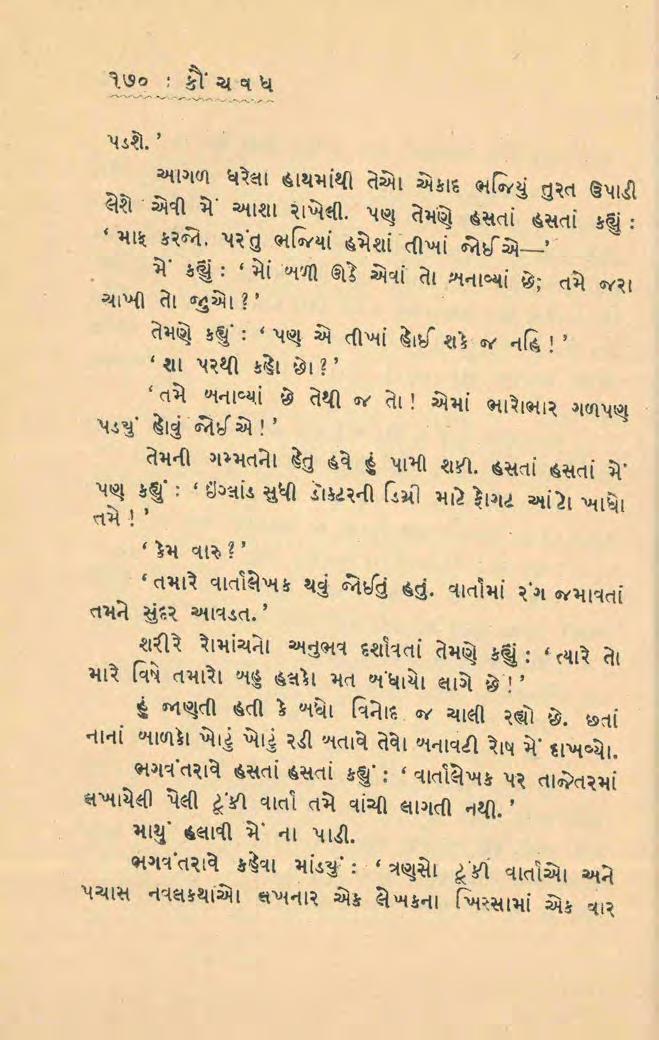 ૧૭૦ : કૌંચવધ
પડશે.’
આગળ ધરેલા હાથમાંથી તેઓ એકાદ ભજિયું તુરત ઉપાડી
લેશે એવી મેં આશા રાખેલી. પણ તેમણે હસતાં હસતાં કહ્યું :
‘ માફ કરજો. પરંતુ ભજિયાં હમેશાં તીખાં જોઈએ—’
મેં કહ્યું : ‘ મોં બળી ઊઠે એવાં તો બનાવ્યાં છે; તમે જરા
ચાખી તો જુઓ ? ’
તેમણે કહ્યું : ‘ પણ એ તીખાં હોઈ શકે જ નહિ ! ’
‘ શા પરથી કહો છો ? ’
‘તમે બનાવ્યાં છે તેથી જ તો ! એમાં ભારોભાર ગળપણ
પડયું હોવું જોઈએ ! ’
તેમની ગમ્મતનો હેતુ હવે હું પામી શકી. હસતાં હસતાં મેં
પણ કહ્યું : ‘ ઇંગ્લાંડ સુધી ડૉક્ટરની ડિગ્રી માટે ફોગટ આંટો ખાધો
તમે ! ’
‘ કેમ વારુ ? ’
‘ તમારે વાર્તાલેખક થવું જોઈતું હતું. વાર્તામાં રંગ જમાવતાં
તમને સુંદર આવડત. ’
શરીરે રોમાંચનો અનુભવ દર્શાવતાં તેમણે કહ્યું : ‘ ત્યારે તો
મારે વિષે તમારો બહુ હલકો મત બંધાયો લાગે છે ! ’
હું જાણતી હતી કે બધો વિનોદ જ ચાલી રહ્યો છે. છતાં
નાનાં બાળકો ખોટું ખોટું રડી બતાવે તેવો બનાવટી રોષ મેં દાખવ્યો.
ભગવંતરાવે હસતાં હસતાં કહ્યું : ‘ વાર્તાલેખક પર તાજેતરમાં
લખાયેલી પેલી ટૂંકી વાર્તા તમે વાંચી લાગતી નથી. ’
માથું હલાવી મેં ના પાડી.
ભગવંતરાવે કહેવા માંડયું : ‘ ત્રણસો ટૂંકી વાર્તાઓ અને
પચાસ નવલકથાઓ લખનાર એક લેખકના ખિસ્સામાં એક વાર